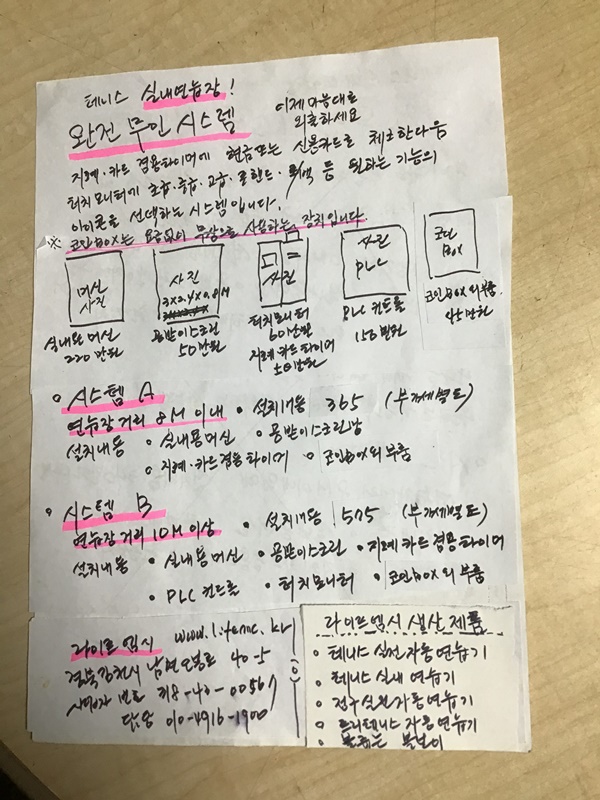 테니스 실내연습장!
완전 무인 시스템
이제 마음대로
의뢰하세요
지폐·카드 겸용타이머에 현금또는 신용카드로 체크한다음
터치모니터에 초급·중급·고급·포핸드· 등 원하는 기능의
아이콘을 선택하는 시스템입니다.
※ 코인BOX는 요금없이 무상으로 사용하는 장치입니다
머신
사진
사진
3x2.4x0.8M
사진
사진
PLC
코인
BOX
실내용머신
220만원
공받이스크린
50만원
터치모니터
60만원
지폐카드타이머
50만원
PLC 컨트롤
150만원
코인BOX외부품
45만원
• 시스템 A
연습장거리 8M 이내 • 설치비용 365 (부가세별도)
설치내용 • 실내용머신 • 공받이스크린망
• 지폐·카드겸용타이머 • 코인BOX외부품
• 시스템 B
연습장거리 10M 이상 • 설치비용 575 (부가세별도)
설치내용 • 실내용머신 • 공받이스크린 • 지폐카드겸용타이머
• PLC 컨트롤 • 터치모니터 • 코인BOX외부품
라이프엠시 www.lifemc.kr
경북김천시 남면 40-5
사업자번호 318-40-00567
010-4916-1900
라이프엠시 생산 제품
• 테니스 실전자동연습기
• 테니스 실내연습기
• 정구실전자동연습기
• 프리테니스 자동연습기
• 볼줍는